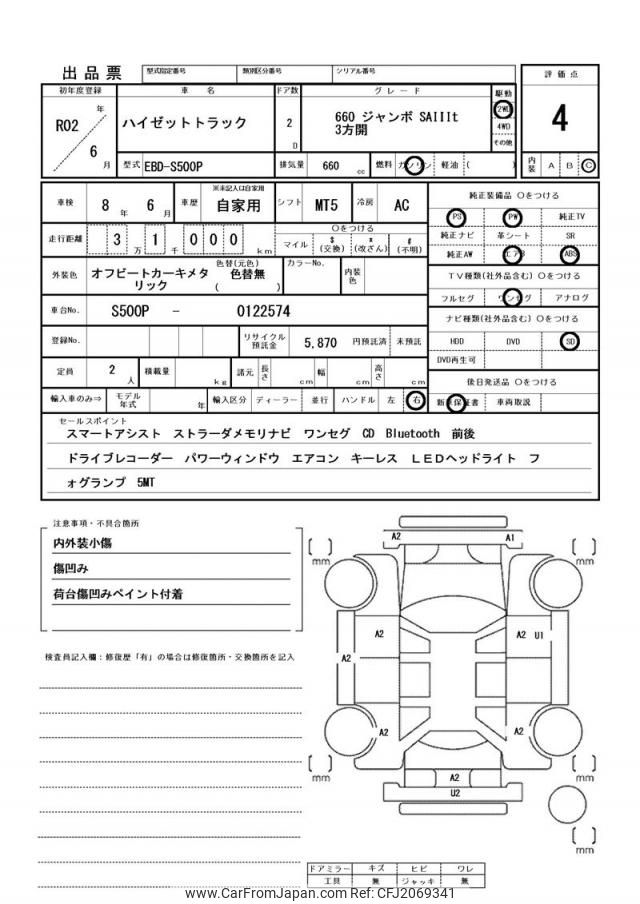 出品票 型式指定番号 類別区分番号 シリアル番号 評価点
初年度登録 車名 ドア数 グレード 駆動
R02 年 6 月
ハイゼットトラック
2 D
660 ジャンボ SAIIIt
3方開
2WD
4WD
その他
4
型式 EBD-S500P 排気量 660 cc 燃料 ガソリン 軽油 ( ) 内装 A B C
車検 8 年 6 月 車歴 ※未記入は自家用 自家用 シフト MT5 冷房 AC
純正装備品 〇をつける
PS PW 純正TV
純正ナビ 革シート SR
純正AW エアB ABS
走行距離 3 万 1 千 0 0 0 km
〇をつける
マイル $ (交換) * (改ざん) # (不明)
外装色 オフビートカーキメタリック 色替(元色) 色替無 ( )
カラーNo. 内装色
TV種類(社外品含む) 〇をつける
フルセグ ワンセグ アナログ
車台No. S500P - 0122574
ナビ種類(社外品含む) 〇をつける
HDD DVD SD
DVD再生可
登録No. リサイクル預託金 5,870 円預託済 未預託
定員 2 人 積載量 kg 諸元 長さ cm 幅 cm 高さ cm
後日発送品 〇をつける
新車保証書 車両取説
輸入車のみ⇒ モデル年式 年 輸入区分 ディーラー 並行 ハンドル 左 右
セールスポイント
スマートアシスト ストラーダメモリナビ ワンセグ CD Bluetooth 前後
ドライブレコーダー パワーウィンドウ エアコン キーレス LEDヘッドライト フ
ォグランプ 5MT
注意事項・不具合箇所
内外装小傷
傷凹み
荷台傷凹みペイント付着
検査員記入欄：修復歴「有」の場合は修復箇所・交換箇所を記入
A2 A1
mm mm
A2 A2 U1
A2
A2 A2
mm mm
A2
U2
mm
ドアミラー キズ ヒビ ワレ
工具 無 ジャッキ 無
www.CarFromJapan.com Ref: CFJ2069341